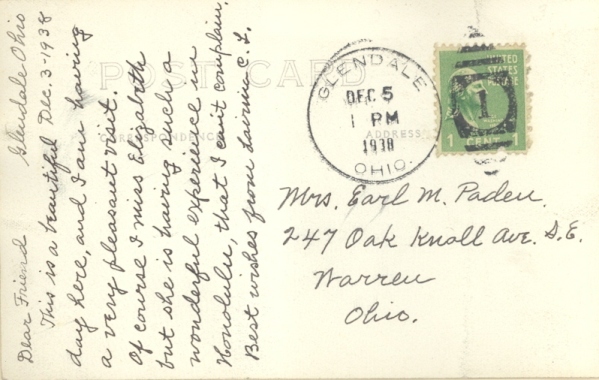 POST CARD
CORRESPONDENCE
ADDRESS
Glendale Ohio
Dec. 3-1938
Dear Friend
This is a beautiful
day here, and I am having
a very pleasant visit.
Of course I miss Elizabeth
but she is having such a
wonderful experience in
Honolulu, that I can't complain.
Best wishes from C. L.
GLENDALE
DEC 5
1 PM
1938
OHIO.
UNITED
STATES
POSTAGE
1
1 CENT
Mrs. Earl M. Paden.
247 Oak Knoll Ave. S.E.
Warren
Ohio.